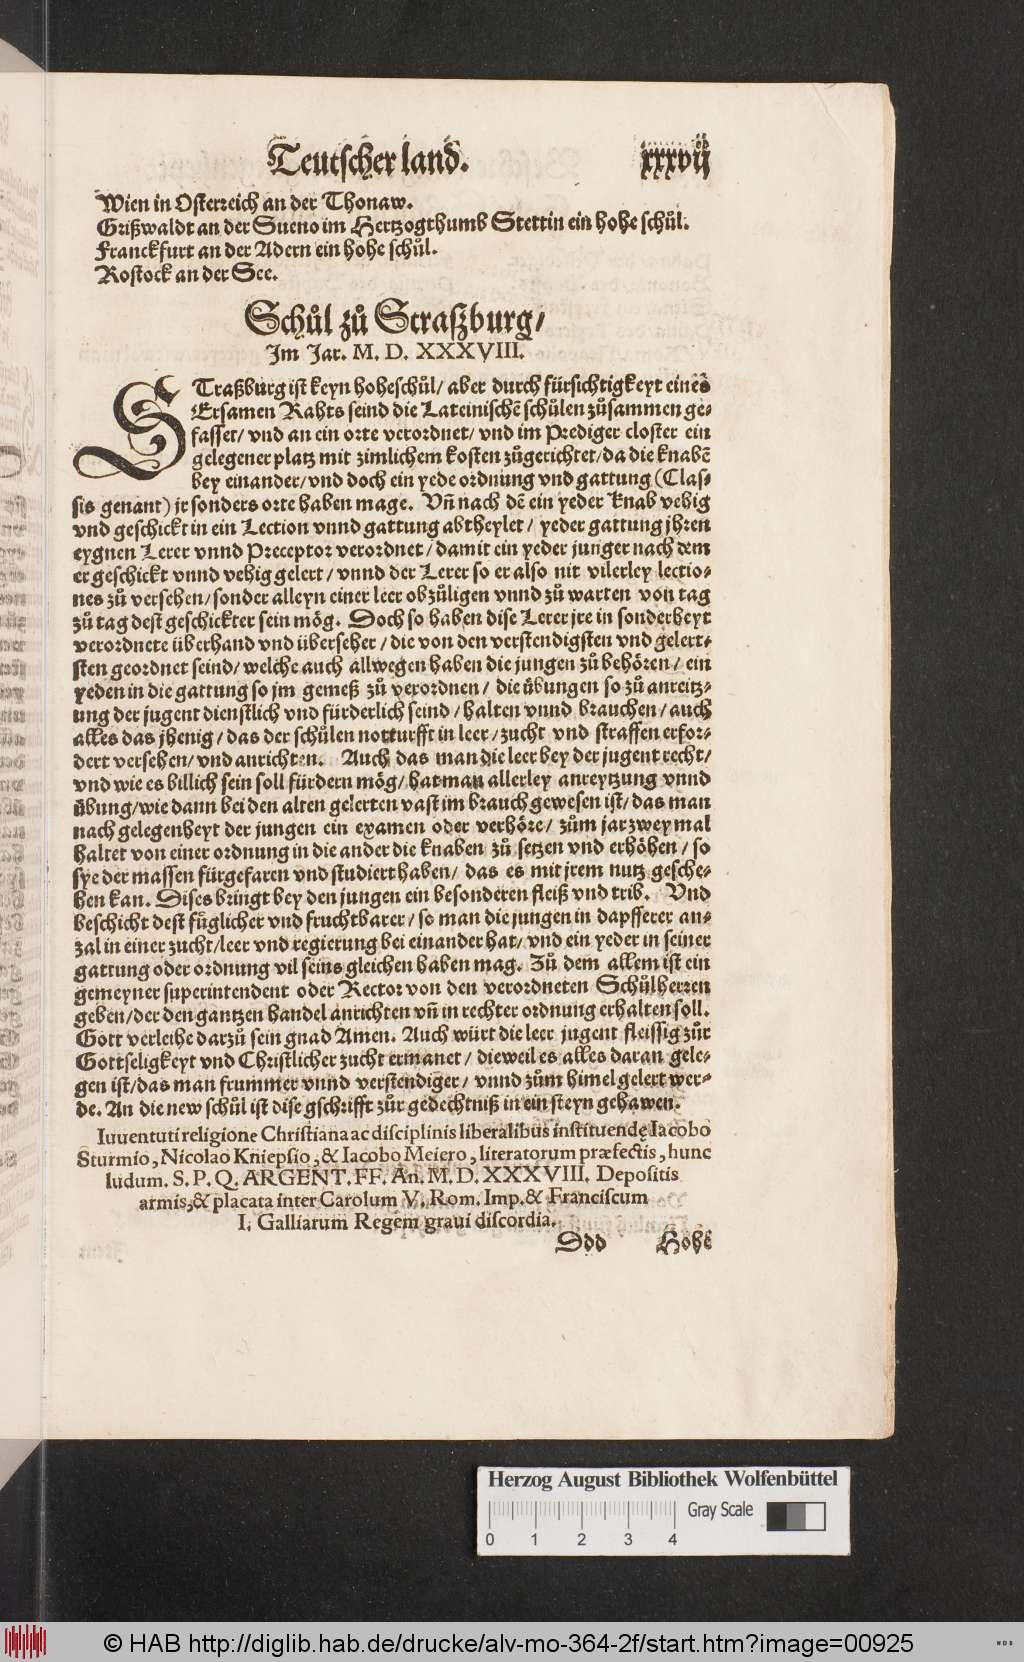 Teutscher land. xxxvij
Wien in Osterreich an der Thonaw.
Grißwaldt an der Sueno im Hertzogthumb Stettin ein hohe schůl.
Franckfurt an der Adern ein hohe schůl.
Rostock an der See.
Schůl zů Straßburg/
Im Jar. M. D. XXXVIII.
STraßburg ist keyn hoheschůl/ aber durch fürsichtigkeyt eines
Ersamen Rahts seind die Lateinischē schůlen zůsammen ge-
fasset/ vnd an ein orte verordnet/ vnd im Prediger closter ein
gelegener platz mit zimlichem kosten zůgerichtet/ da die knabē
bey einander/ vnd doch ein yede ordnung vnd gattung (Clas-
sis genant) jr sonders orte haben mage. Vñ nach dē ein yeder knab vehig
vnd geschickt in ein Lection vnnd gattung abtheylet/ yeder gattung jhren
eygnen Lerer vnnd Preceptor verordnet/ damit ein yeder junger nach dem
er geschickt vnnd vehig gelert/ vnnd der Lerer so er also nit vilerley lectio-
nes zů versehen/ sonder alleyn einer leer obzůligen vnnd zů warten von tag
zů tag dest geschickter sein mög. Doch so haben dise Lerer jre in sonderheyt
verordnete überhand vnd überseher/ die von den verstendigsten vnd gelert-
sten geordnet seind/ welche auch allwegen haben die jungen zů behören/ ein
yeden in die gattung so jm gemeß zů verordnen/ die übungen so zů anreitz-
ung der jugent dienstlich vnd fürderlich seind/ halten vnnd brauchen/ auch
alles das jhenig/ das der schůlen notturfft in leer/ zucht vnd straffen erfor-
dert versehen/ vnd anrichten. Auch das man die leer bey der jugent recht/
vnd wie es billich sein soll fürdern mög/ hat man allerley anreytzung vnnd
übung/ wie dann bei den alten gelerten vast im brauch gewesen ist/ das man
nach gelegenheyt der jungen ein examen oder verhöre/ zům jar zwey mal
haltet von einer ordnung in die ander die knaben zů setzen vnd erhöhen/ so
sye der massen fürgefaren vnd studiert haben/ das es mit jrem nutz gesche-
hen kan. Dises bringt bey den jungen ein besonderen fleiß vnd trib. Vnd
beschicht dest füglicher vnd fruchtbarer/ so man die jungen in dapfferer an-
zal in einer zucht/ leer vnd regierung bei einander hat/ vnd ein yeder in seiner
gattung oder ordnung vil seins gleichen haben mag. Zů dem allem ist ein
gemeyner superintendent oder Rector von den verordneten Schůlherren
geben/ der den gantzen handel anrichten vñ in rechter ordnung erhalten soll.
Gott verleihe darzů sein gnad Amen. Auch würt die leer jugent fleissig zůr
Gottseligkeyt vnd Christlicher zucht ermanet/ dieweil es alles daran gele-
gen ist/ das man frummer vnnd verstendiger/ vnnd zům himel gelert wer-
de. An die new schůl ist dise gschrifft zůr gedechtniß in ein steyn gehawen.
Iuuentuti religione Christiana ac disciplinis liberalibus instituendę Iacobo
Sturmio, Nicolao Kniepsio, & Iacobo Meiero, literatorum præfectis, hunc
ludum. S. P. Q. ARGENT. FF. An. M. D. XXXVIII. Depositis
armis, & placata inter Carolum V. Rom. Imp. & Franciscum
I. Galliarum Regem graui discordia.
Ddd Hohē
Herzog August Bibliothek Wolfenbüttel
Gray Scale
0 1 2 3 4
© HAB http://diglib.hab.de/drucke/alv-mo-364-2f/start.htm?image=00925